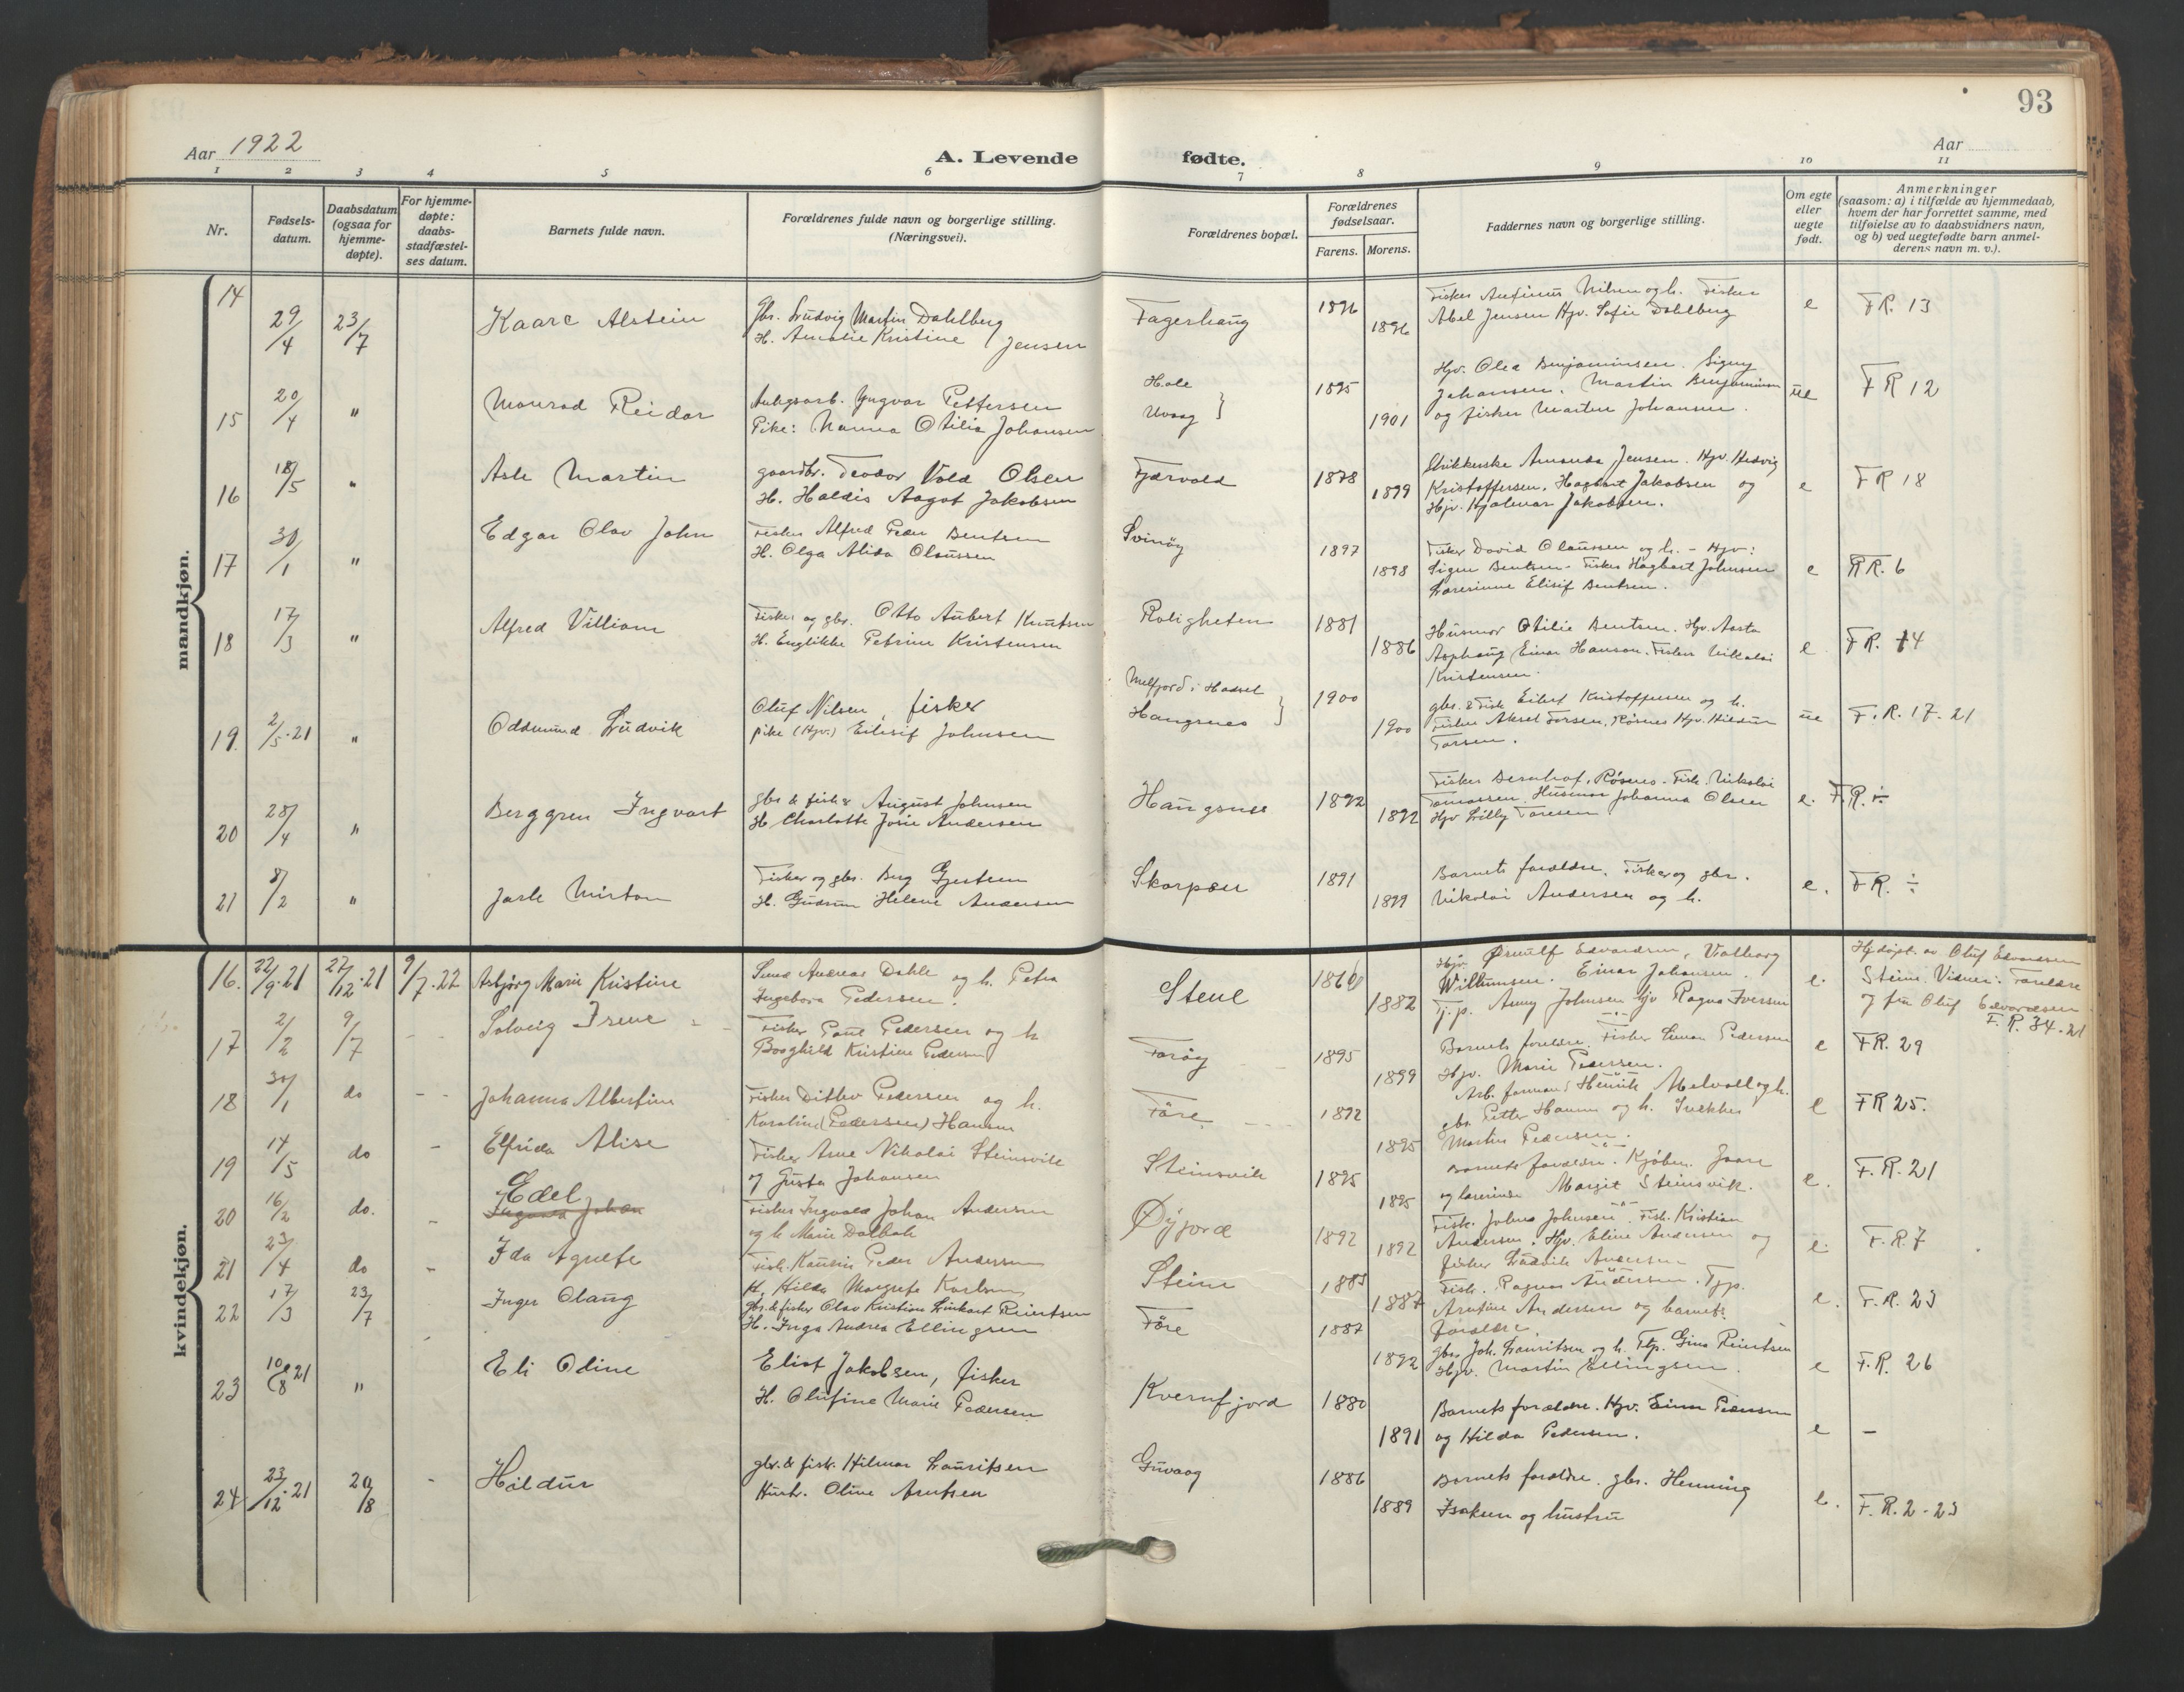 93
Aar 1922
A. Levende fødte.
Aar
1 2 3 4 5 6 7 8 9 10 11
Nr.
Fødsels-
datum.
Daabsdatum
(ogsaa for
hjemme-
døpte).
For hjemme-
døpte:
daabs-
stadfæstel-
ses datum.
Barnets fulde navn.
Forældrenes fulde navn og borgerlige stilling.
(Næringsvei).
Forældrenes bopæl.
Forældrenes
fødselsaar.
Farens. Morens.
Faddernes navn og borgerlige stilling.
Om egte
eller
uegte
født.
Anmerkninger
(saasom: a) i tilfælde av hjemmedaab,
hvem der har forrettet samme, med
tilføielse av to daabsvidners navn,
og b) ved uegtefødte barn anmel-
derens navn m. v.).
mandkjøn.
14 29/4 23/7 Kaare Alstein
Gbr. Ludvig Martin Dahlberg
H. Amalie Kristine Jensen
Fagerhaug 1896 1896
Fisker Nilsen og h. Fisker
Abel Jensen Hjv. Sofie Dahlberg
e FR. 13
15 20/4 " Monrad Reidar
Ingvar Pettersen
Pike: Nanna Otilie Johansen
Hole
Uvaag } 1895 1901
Hjv. Olea Benjaminsen. Signy
Johansen. Martin Benjaminsen
og fisker Martin Johansen.
ue FR 12
16 18/5 " Asle Martin
gaardbr. Teodor Vold Olsen
H. Haldis Aagot Jakobsen
Fjærvold 1878 1899
Strikkerske Amanda Jensen. Hjv. Hedvig
Kristoffersen. Hagbart Jakobsen og
Hjv. Hjalmar Jakobsen.
e FR 18
17 30/1 " Edgar Olav John
Fisker Alfred Peder Bentsen
H. Olga Alida Olaussen
Svinøy 1897 1898
Fisker David Olaussen og h. - Hjv:
Signe Bentsen - Fisker Hagbart Johnsen
Lærerinne Elisif Bentsen.
e FR. 6
18 17/3 " Alfred Villiam
Fisker og gbr. Otto Aubert Knutsen
H. Englikke Petrine Kristensen
Roligheten 1881 1886
Husmor Otilie Bentsen. Hjv. Aasta
Asphaug Einar Hanson. Fisker Nikolai
Kristensen.
e FR. 14
19 2/5.21 " Oddmund Ludvik
Oluf Nilsen, fisker
pike (Hjv.) Eilisif Johnsen
Melfjord i Hadsel
Haugsnes } 1900 1900
gbr. & Fisk Eilert Kristoffersen og h.
Fisker Aksel Torsen, Røsnes Hjv. Hildur
Torsen.
ue F.R. 17-21
20 28/4 " Berggren Ingvart
gbr & fisker August Johnsen
H Charlotte Josie Andersen
Haugsnes 1892 1892
Fisker Bernhof. Røsnes. Fisk. Nikolai
Tomassen. Husmor Johanna Olsen
Hjv Lilly Toresen
e. F.R. ÷
21 8/2 " Jarle Mirton
Fisker og gbr. Berg Gjestein
H. Gudrun Helene Andersen
Skarpæn 1891 1899
Barnets forældre. Fisker og gbr.
Nikolai Andersen og h.
e. FR. ÷
kvindekjøn.
16. 22/9.21 27/12.21 9/7.22 Asbjørg Marie Kristine
Smed Andreas Dahle og h. Petra
Ingeborg Pedersen.
Stene 1860 1882
Hjv. Ørnulf Edvardsen, Valborg
Willumsen. Einar Johansen.
Tj.p. Anny Johnsen hjv Ragna Iversen
e. Hjdøpt. av Oluf Edvardsen
Steine. Vidner: Foreldre
og fru Oluf Edvardsen
F.R. 34-21
17 2/2 9/7 Solveig Irene
Fisker Paul Pedersen og h
Borghild Kristine Pedersen
Forøy 1895 1899
Barnets foreldre. Fisker Simon Pedersen
Hjv. Marie Pedersen.
e FR. 29
18 30/1 do Johanna Albertine
Fisker Ditlev Pedersen og h.
Karoline (Pedersen) Hansen
Føre 1892 1895
Arb. formand Henrik Melvoll og h.
gbr. Petter Hansen og h. Snekker
Martin Pedersen.
e FR 25.
19 14/5 do Elfrida Alise
Fisker Arne Nikolai Steinsvik
og Gusta Johansen
Steinsvik 1895 1895
Barnets forældre. Kjøbm.
og lærerinde Margit Steinsvik.
e. F.R. 21
20 16/2 do. Edel
Fisker Ingvald Johan Andersen
og h Marie Dalbak
Øyjord 1892 1892
Fisk. Johns Johnsen. Fisk. Kristian
Andersen. Hjv. Eline Andersen og
fisker Ludvik Andersen
e. F.R. 7
21 23/4 do Ida Agnete
Fisk. Peder Andersen
H. Hilda Margrete Karlsen
Steine 1885 1887
Fisk. Ragnar Andersen. Tjp.
Arntine Andersen og barnets
forældre.
e. F.R. 23
22 17/3 23/7 Inger Olaug
gbr. & fisker Olav Kristian Reintsen
H. Inga Andrea Ellingsen
Føre 1887 1892
gbr Joh. Lauritsen og h. Tjp. Gina Reintsen
Hjv. Martin Ellingsen.
e F.R. 26
23 10/8 21 " Eli Odine
Eliot Jakobsen, fisker
H. Olufine Marie Pedersen
Kvernfjord 1880 1891
Barnets forældre. Hjv. Einar Pedersen
og Hilda Pedersen.
e -
24 23/12.21 20/8 Hildur
gbr. & fisk. Hilmar Lauritsen
Hustr. Oline Arntsen
Guvaag 1886 1889
Barnets forældre. gbr. Henning
Isaksen og hustru
e. F.R. 2-23